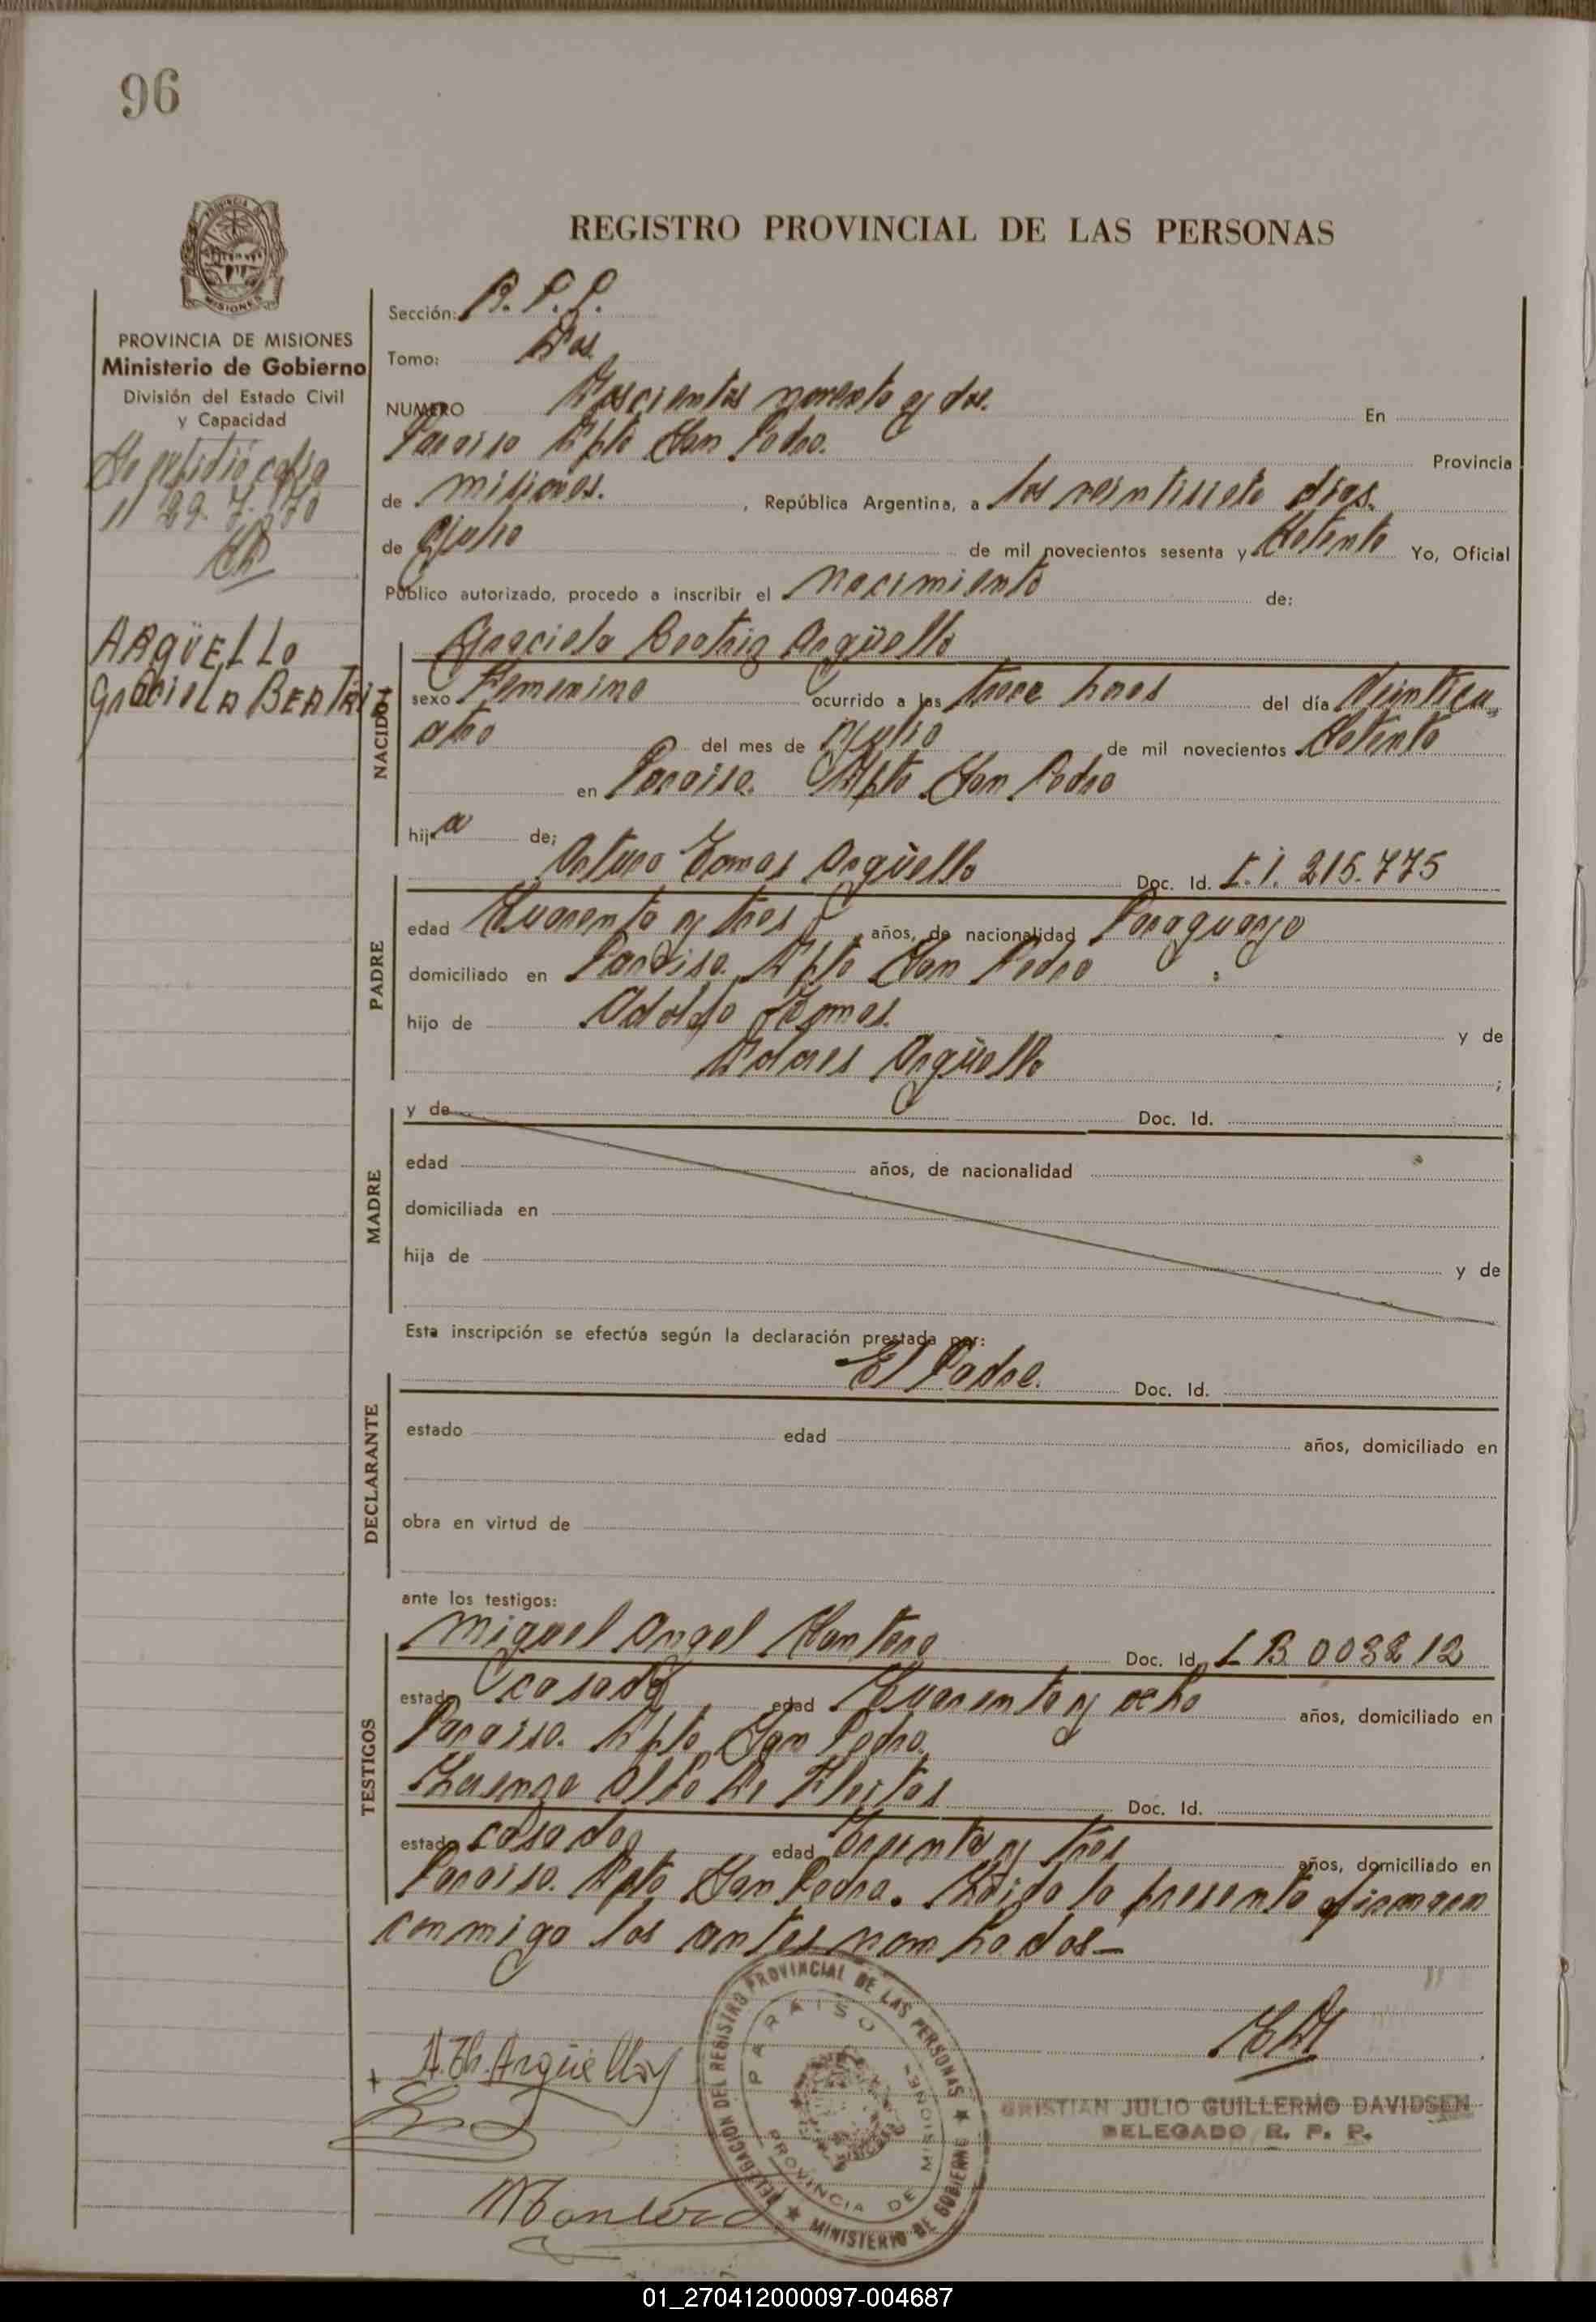 96
REGISTRO PROVINCIAL DE LAS PERSONAS
PROVINCIA DE MISIONES
Ministerio de Gobierno
División del Estado Civil
y Capacidad
Se expidió copia
29.7.970
ARGÜELLO
Graciela BEATRIZ
Sección: R. P. P.
Tomo: Dos
NUMERO Doscientos noventa y dos. En
Paraiso Dpto San Pedro. Provincia
de Misiones. , República Argentina, a los veintisiete dias.
de Julio de mil novecientos sesenta y Setenta Yo, Oficial
Público autorizado, procedo a inscribir el nacimiento de:
NACIDO
Graciela Beatriz Argüello
sexo Femenino ocurrido a las trece horas del día Veinticu
atro del mes de Julio de mil novecientos Setenta
en Paraiso. Dpto San Pedro
hij a de;
PADRE
Arturo Tomas Argüello Doc. Id. C.I. 215.775
edad Cuarenta y tres años, de nacionalidad Paraguayo
domiciliado en Paraiso. Dpto San Pedro ;
hijo de Adolfo Tomas. y de
Dolores Argüello ;
MADRE
y de Doc. Id.
edad años, de nacionalidad
domiciliada en
hija de y de
Esta inscripción se efectúa según la declaración prestada por:
DECLARANTE
El Padre. Doc. Id.
estado edad años, domiciliado en
obra en virtud de
ante los testigos:
TESTIGOS
Miguel Angel Montero Doc. Id. 003812
estado casado edad Cuarenta y ocho años, domiciliado en
Paraiso. Dpto San Pedro.
Fleitas Doc. Id.
estado casado edad Treinta y tres años, domiciliado en
Paraiso. Dpto San Pedro. Leida la presente firmaron
conmigo los antes nombrados—
A. Th. Argüello
Montero
DELEGACION DEL REGISTRO PROVINCIAL DE LAS PERSONAS ★ MINISTERIO DE GOBIERNO ★
PARAISO
PROVINCIA DE MISIONES
CRISTIAN JULIO GUILLERMO DAVIDSEN
DELEGADO R. P. P.
01_270412000097-004687